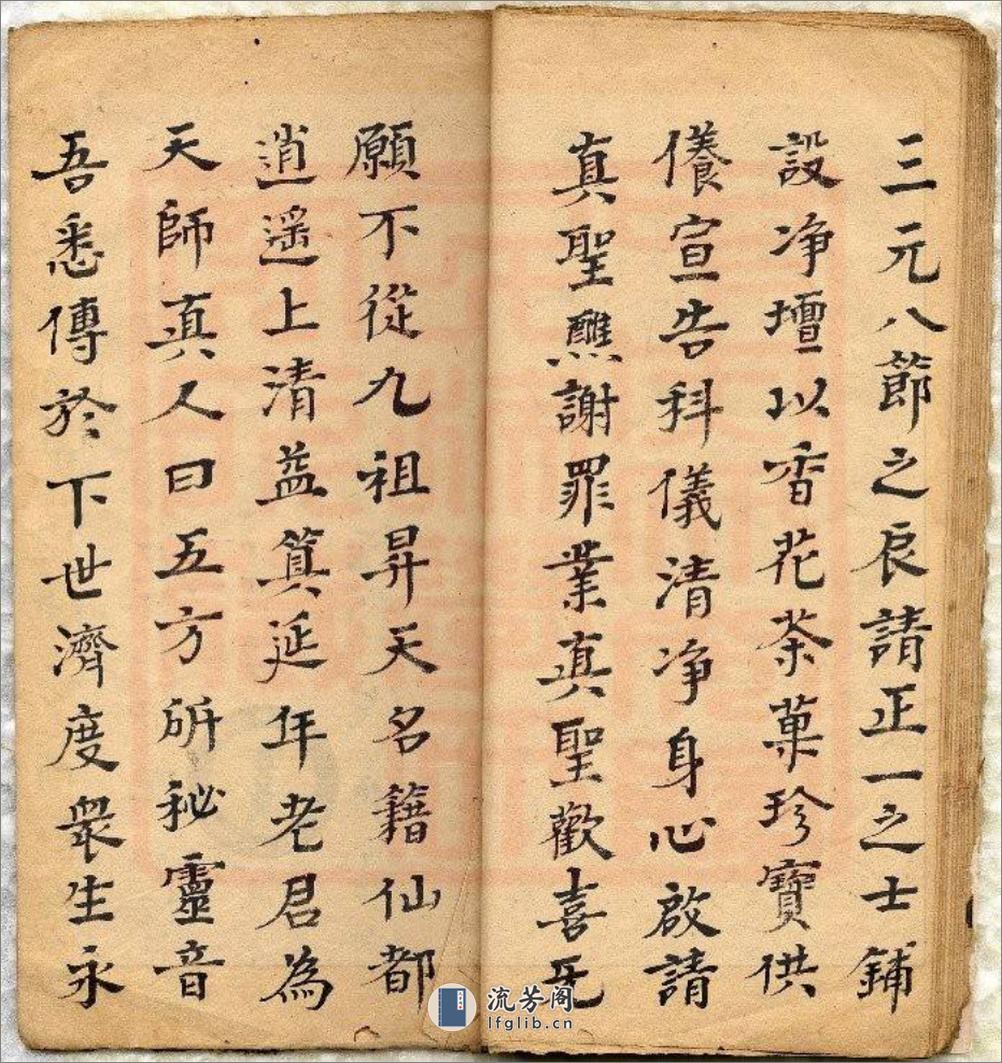 三元八節之辰請正一之士鋪
設净壇以香花茶菓珍寶供
養宣告科儀清净身心啟請
真聖醮謝罪業真聖歡喜无
願不從九祖昇天名籍仙都
逍遥上清益筭延年老君為
天師真人曰五方所秘靈音
吾悉傳於下世濟度衆生永
流芳阁
lfglib.cn